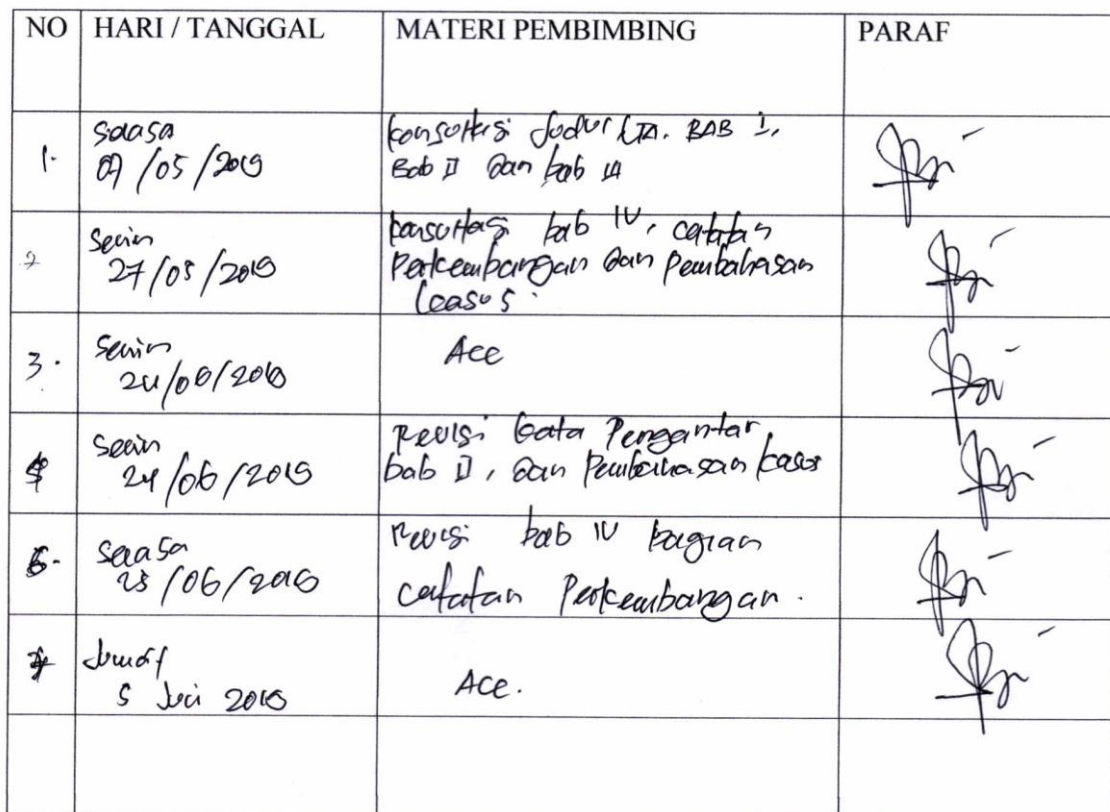 NO HARI / TANGGAL MATERI PEMBIMBING PARAF
1. Selasa
07/05/2019
Konsultasi Judul LTA. BAB I,
Bab II dan bab III
2 Senin
27/05/2019
Konsultasi bab IV, catatan
Perkembangan dan Pembahasan
kasus.
3. Senin
24/06/2019
Acc
Senin
24/06/2019
Revisi Kata Pengantar
bab II, dan Pembahasan kasus
Selasa
25/06/2019
Revisi bab IV bagian
catatan Perkembangan.
Jumat
5 Juli 2019
Acc.